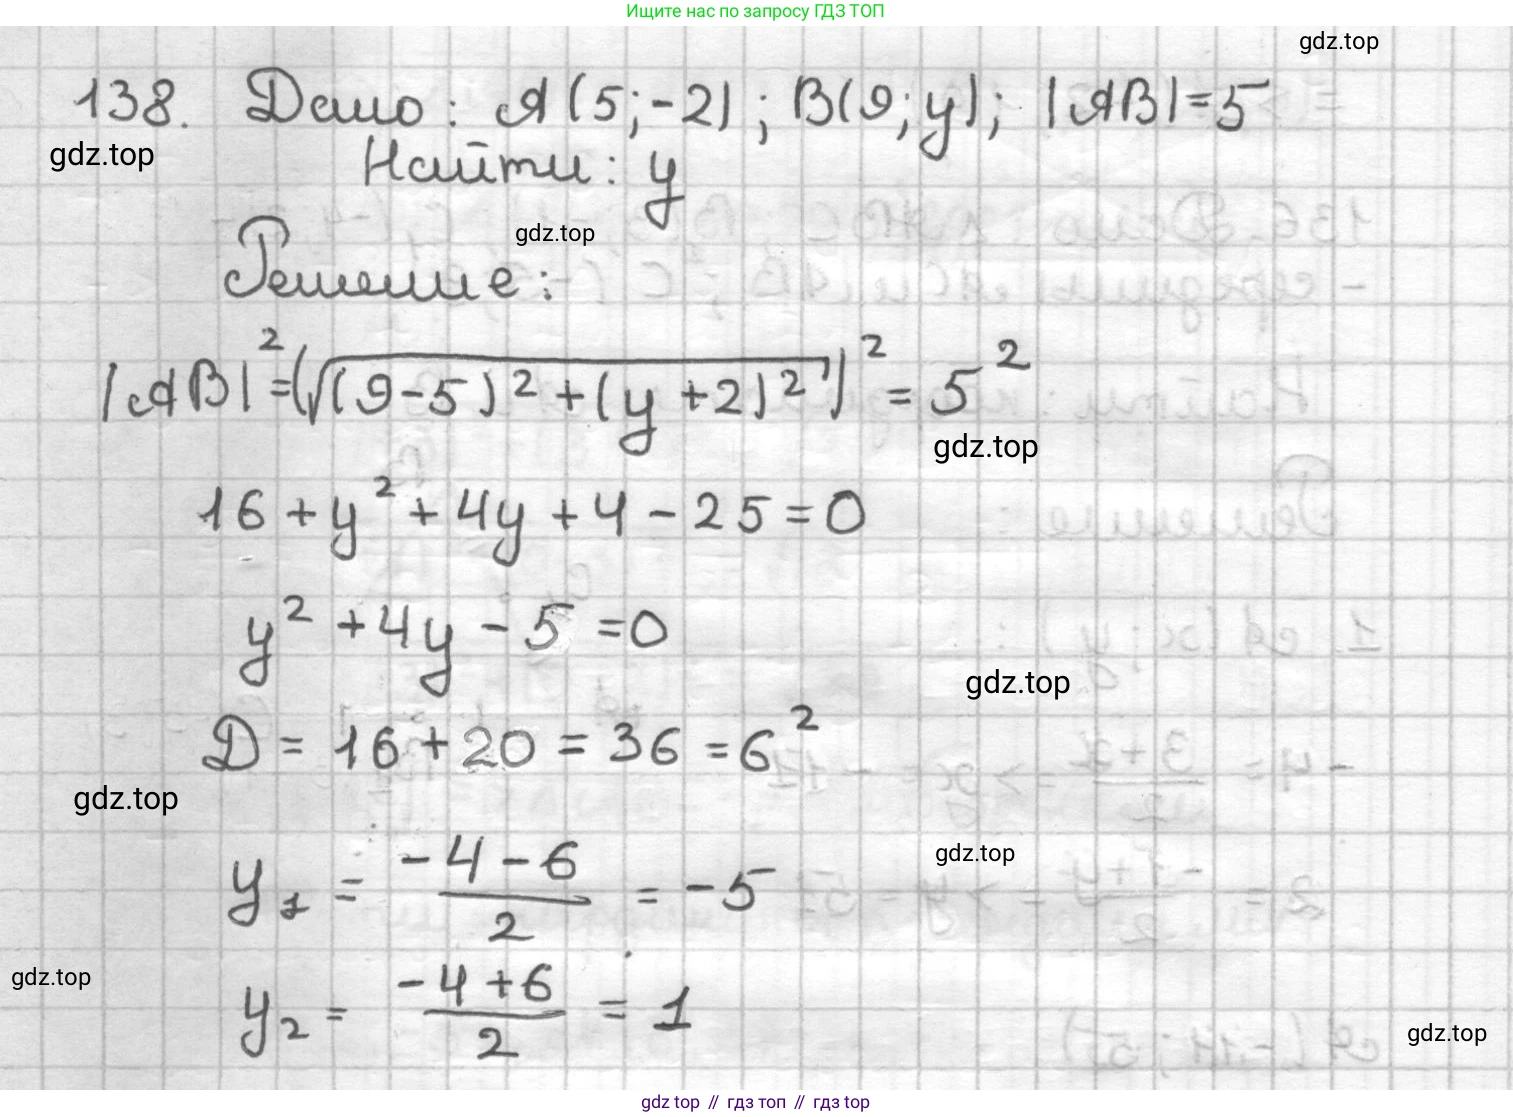 Ищите нас по запросу ГДЗ ТОП
gdz.top
138. Дано: A(5;-2); B(9;y); |AB|=5
gdz.top
Найти: y
gdz.top
Решение:
|AB|²=(√((9-5)²+(y+2)²))²=5²
gdz.top
16+y²+4y+4-25=0
y²+4y-5=0
gdz.top
D=16+20=36=6²
gdz.top
y₁ = (-4-6)/2 = -5
gdz.top
y₂ = (-4+6)/2 = 1
gdz.top
gdz.top
gdz top // гдз топ // гдз top